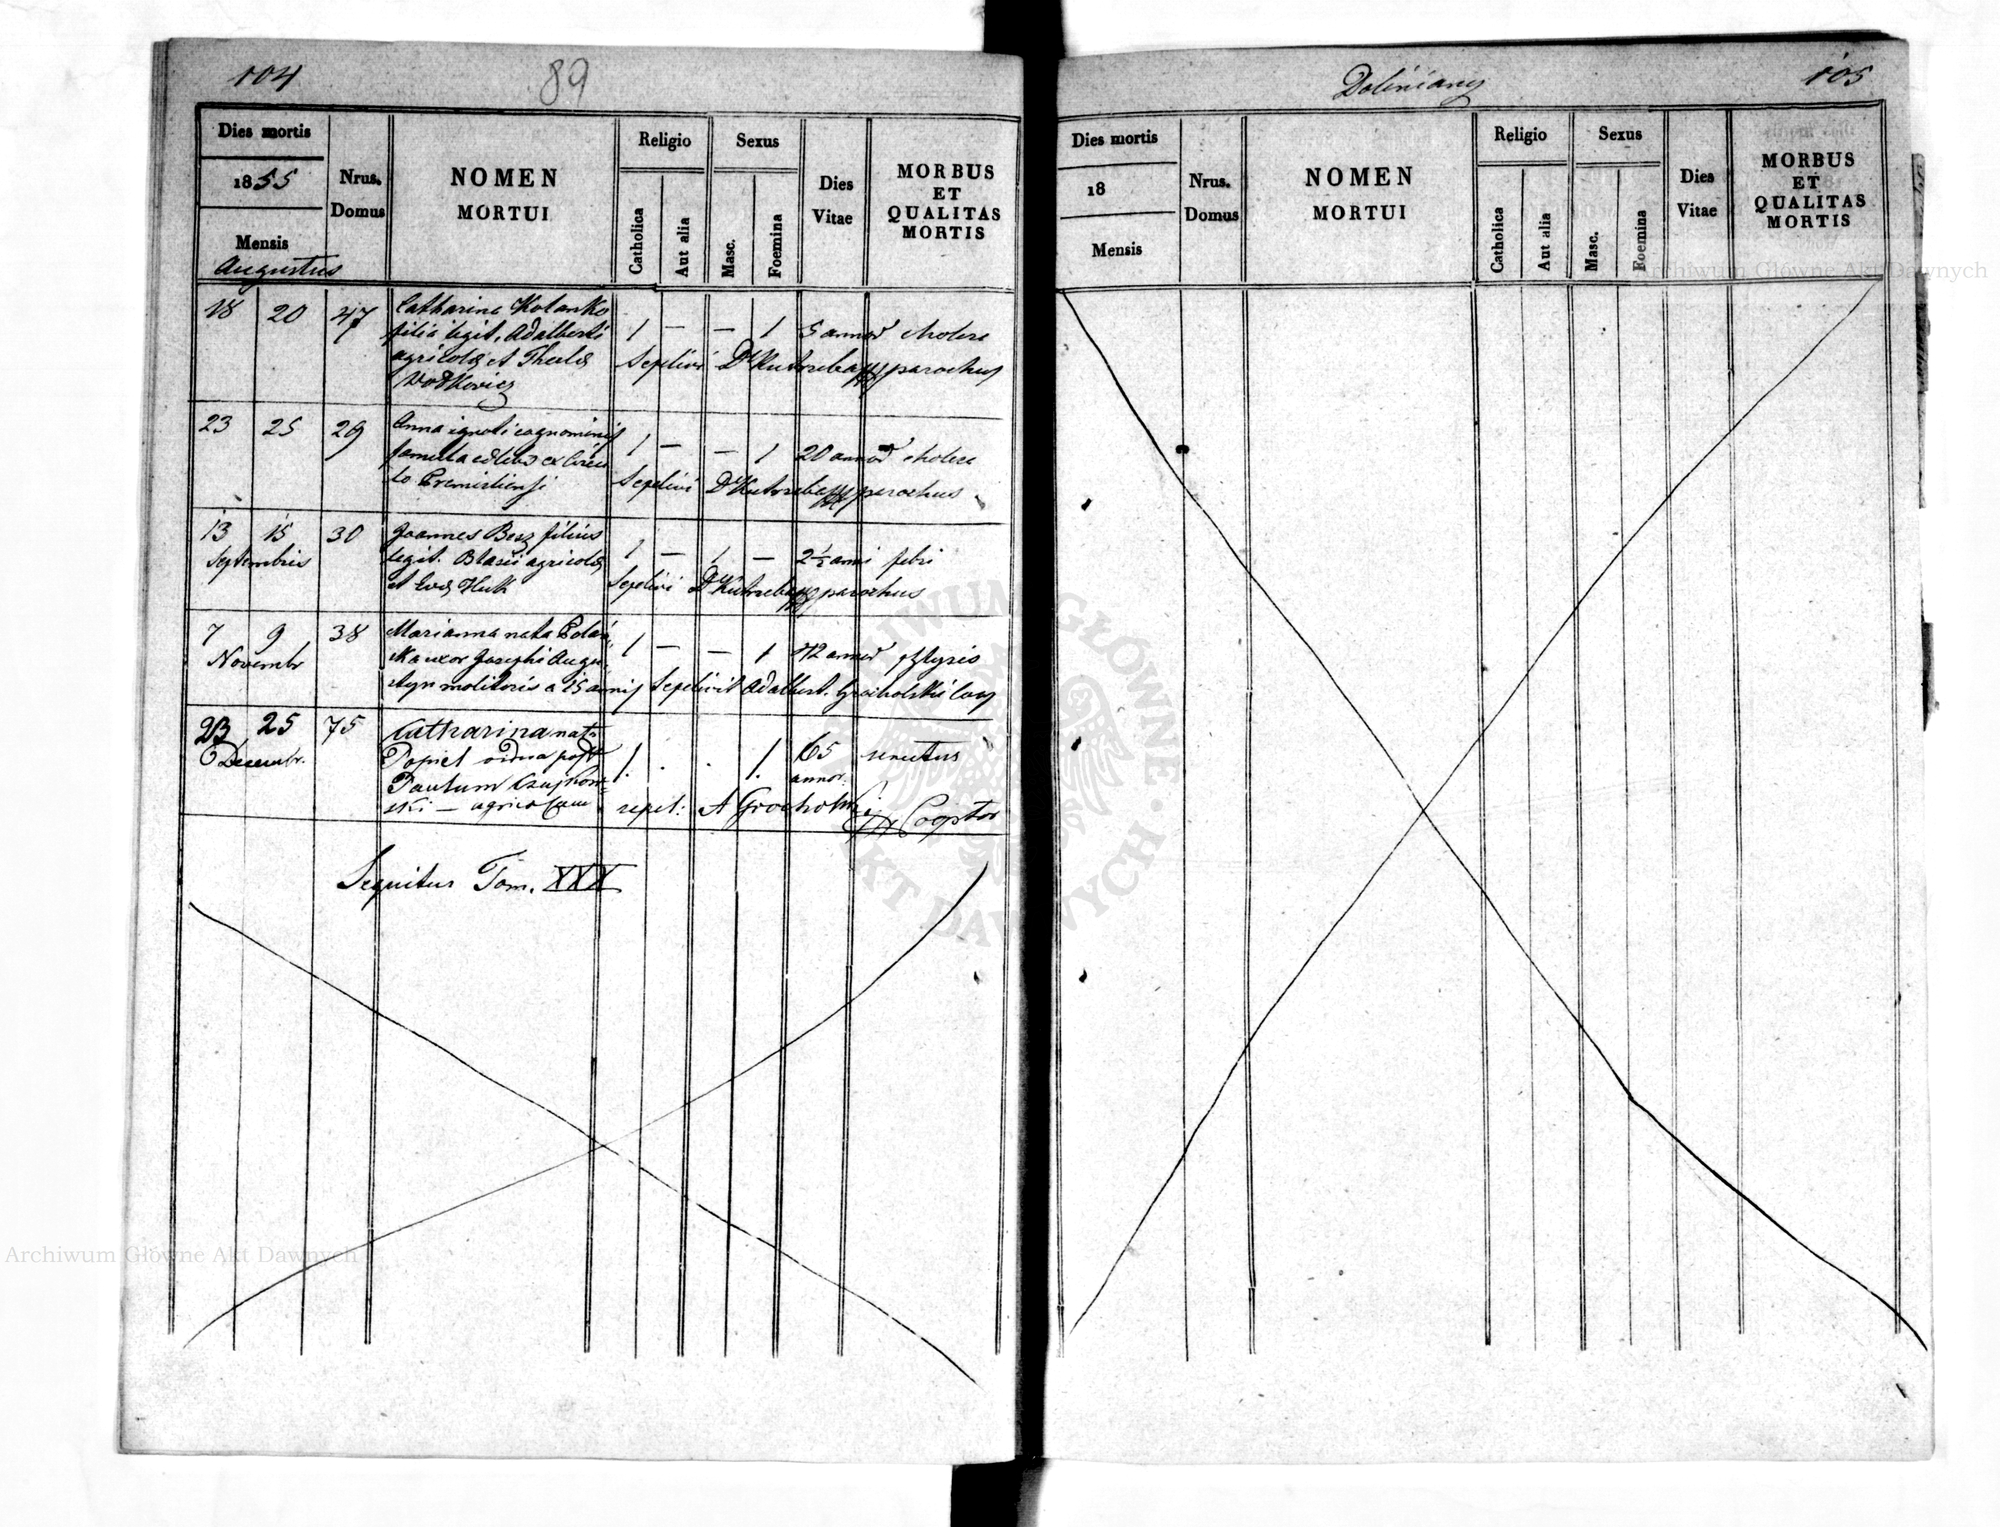 104
89
Dies mortis
1855
Mensis
Augustus
Nrus.
Domus
NOMEN
MORTUI
Religio
Catholica
Aut alia
Sexus
Masc.
Foemina
Dies
Vitae
MORBUS
ET
QUALITAS
MORTIS
18 20 47 Catharina Kolanko
filia legit. Adalberti 1 — — 1 5 annor cholera
agricolæ et Theclæ Sepelivi Kutrzeba parochus
23 25 29 Anna ignoti cognominis
famula ex 1 — — 1 20 annor cholera
Sepelivi Kutrzeba parochus
13 15 30 Joannes Bess filius
Septembris legit. Blasii agricolæ 1 — 1 — 2½ anni febri
et Evæ Huk Sepelivi Kutrzeba parochus
7 9 38 Marianna nata
Novembr uxor Josephi 1 — — 1 72 annor
molitoris a 15 annis Sepelivit Adalbert. Grocholski Coop
23 25 75 Catharina nata
Decembr. Popiel vidua post 1. . . 1. 65 senectus
Paulum Czajkow- annor.
ski — agricolam sepel: A Grocholski Cooptor
Sequitur Tom. XXX
Doliniany
105
Dies mortis
18
Mensis
Nrus.
Domus
NOMEN
MORTUI
Religio
Catholica
Aut alia
Sexus
Masc.
Foemina
Dies
Vitae
MORBUS
ET
QUALITAS
MORTIS
Archiwum Główne Akt Dawnych
ARCHIWUM GŁÓWNE AKT DAWNYCH
Archiwum Główne Akt Dawnych